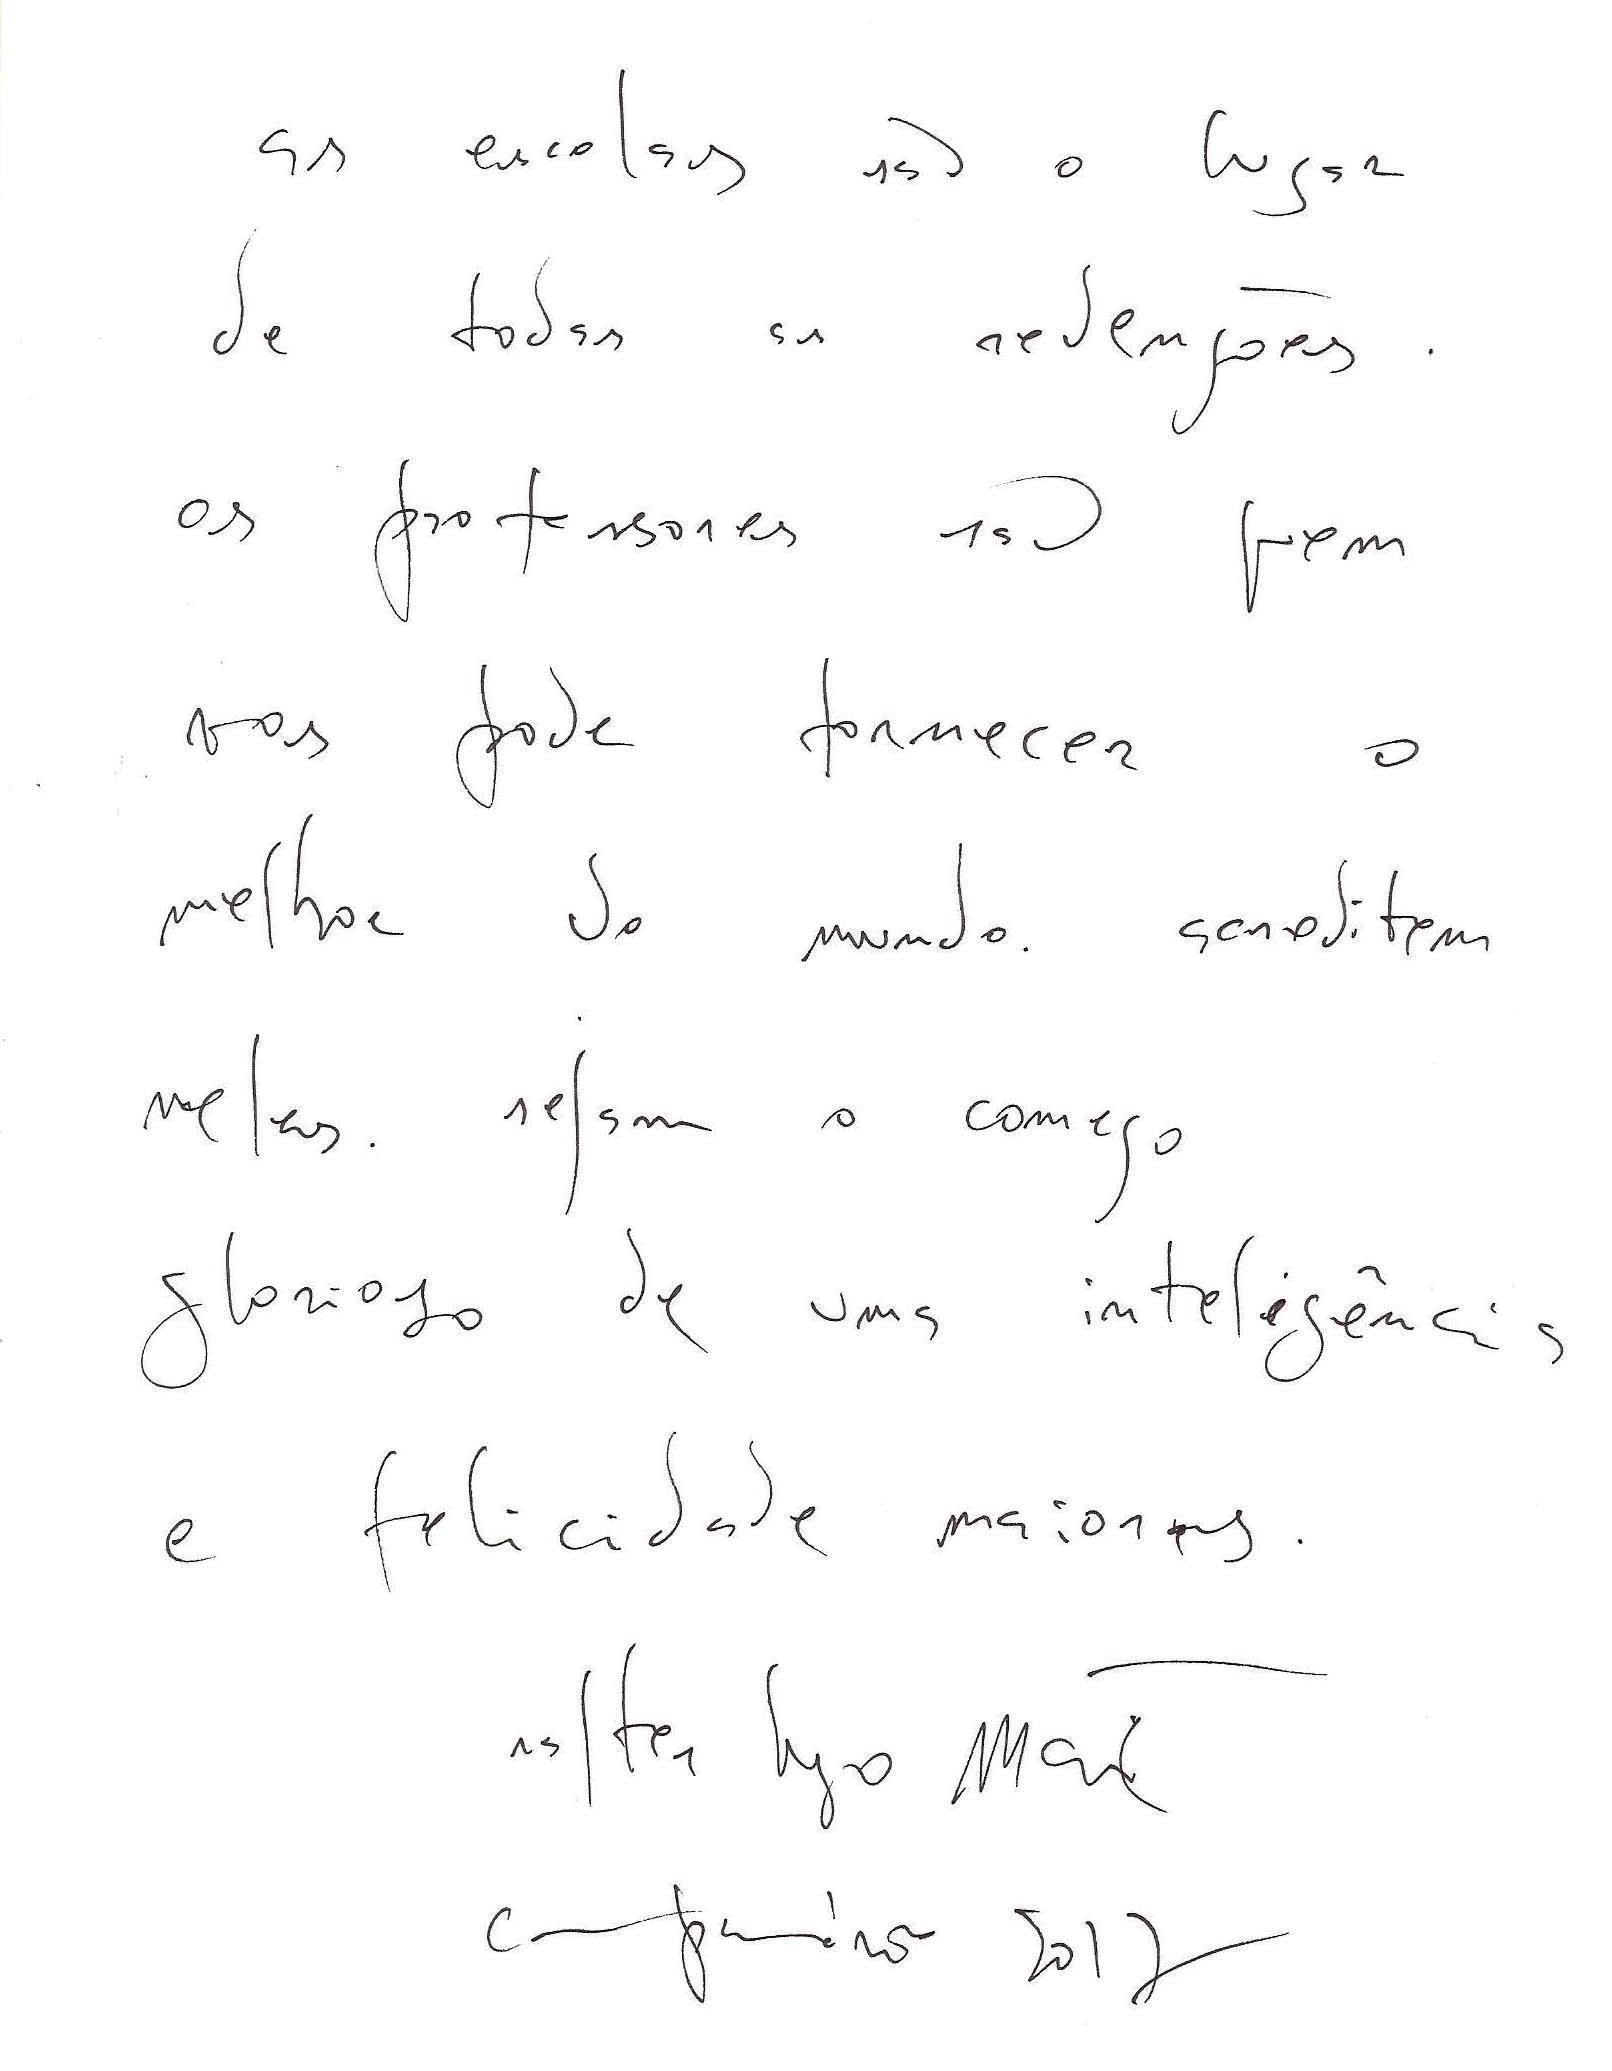 as escolas são o lugar
de todas as redenções.
os professores são quem
vos pode fornecer o
melhor do mundo. acreditem
neles. sejam o começo
glorioso de uma inteligência
e felicidade maiores.
valter hugo mãe
2017